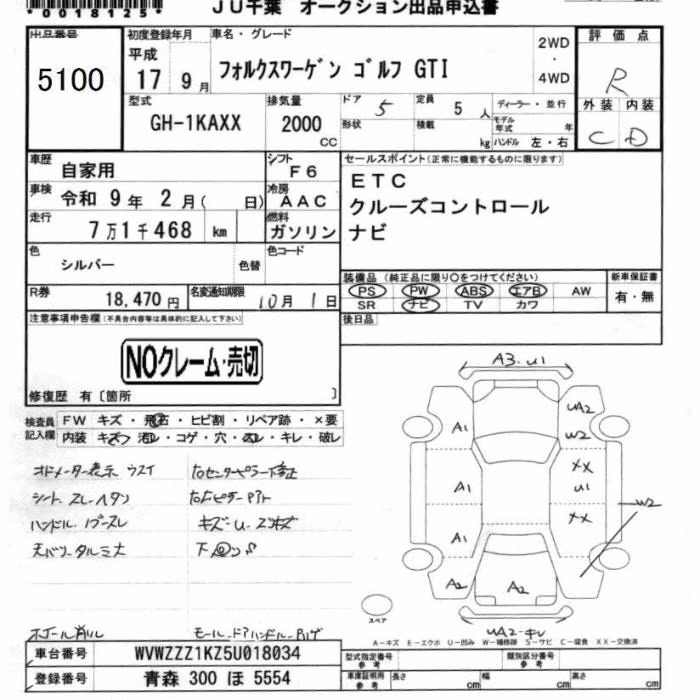 *0018125*
JU千葉 オークション出品申込書
出品番号
5100
初度登録年月
平成
17 9月
車名・グレード
フォルクスワーゲン ゴルフ GTI
2WD
・
4WD
評価点
R
外装 内装
C D
型式
GH-1KAXX
排気量
2000
cc
ドア 5
形状
定員 5人
積載 kg
ディーラー・並行
モデル年式 年
ハンドル 左・右
車歴
自家用
シフト
F6
車検
令和 9年 2月( 日)
冷房
AAC
走行
7万1千468 km
燃料
ガソリン
セールスポイント(正常に機能するものに限ります)
ETC
クルーズコントロール
ナビ
色
シルバー
色替
色コード
R券
18,470円
名変通知期限
10月 1日
装備品 (純正品に限り○をつけてください)
PS PW ABS エアB AW
SR ナビ TV カワ
新車保証書
有・無
後日品
注意事項申告欄(不具合内容等は具体的に記入して下さい)
NOクレーム・売切
修復歴 有〔箇所 〕
検査員
記入欄
FW キズ・飛石・ヒビ割・リペア跡・×要
内装 キズ・汚レ・コゲ・穴・スレ・キレ・破レ
オドメーター表示 ウスイ
シート スレ・ヘタン
ハンドル
キズ・U・
A3・U1
A1
UA2
W2
A1
XX
U1
XX
W2
A1
A2
A2
UA2・キレ
スペア
A-キズ E-エクボ U-凹み W-補修跡 S-サビ C-腐食 XX-交換済
車台番号
WVWZZZ1KZ5U018034
登録番号
青森 300 ほ 5554
型式指定番号
参考
類別区分番号
参考
車庫証明用
参考
長さ cm
幅 cm
高さ cm